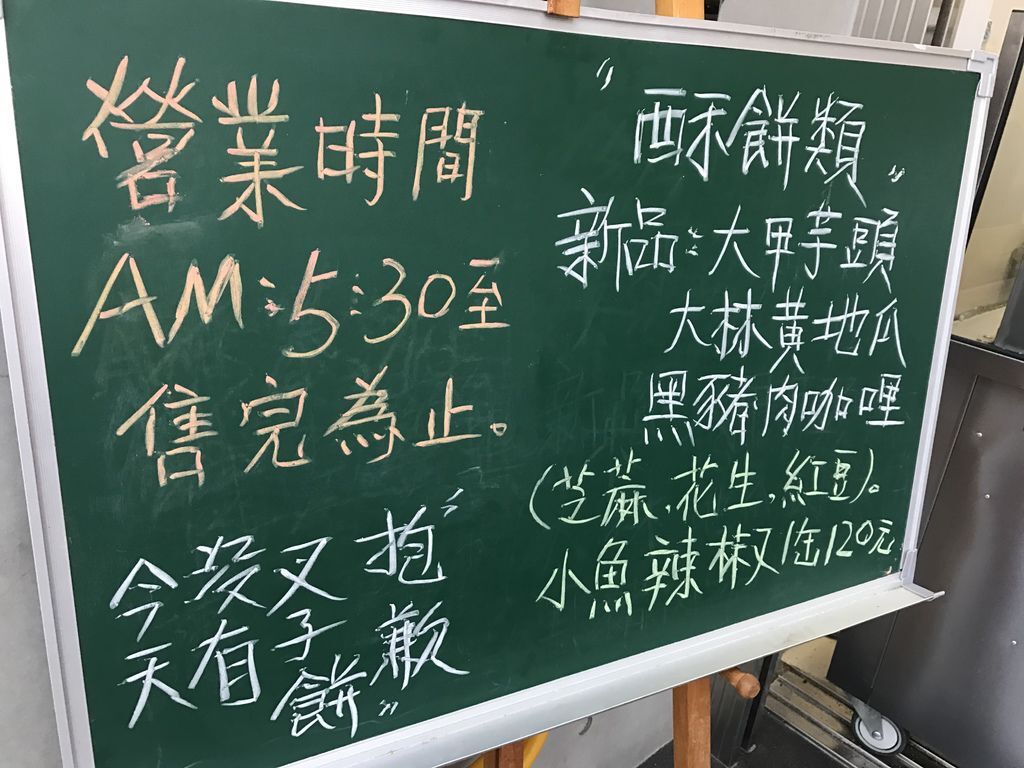 營業時間
AM:5:30至
售完為止。
今天
没有
叉子餅
抱歉"
"酥餅類"
新品:大甲芋頭
大林黃地瓜
黑豬肉咖哩
(芝蔴,花生,紅豆)。
小魚辣椒
120元